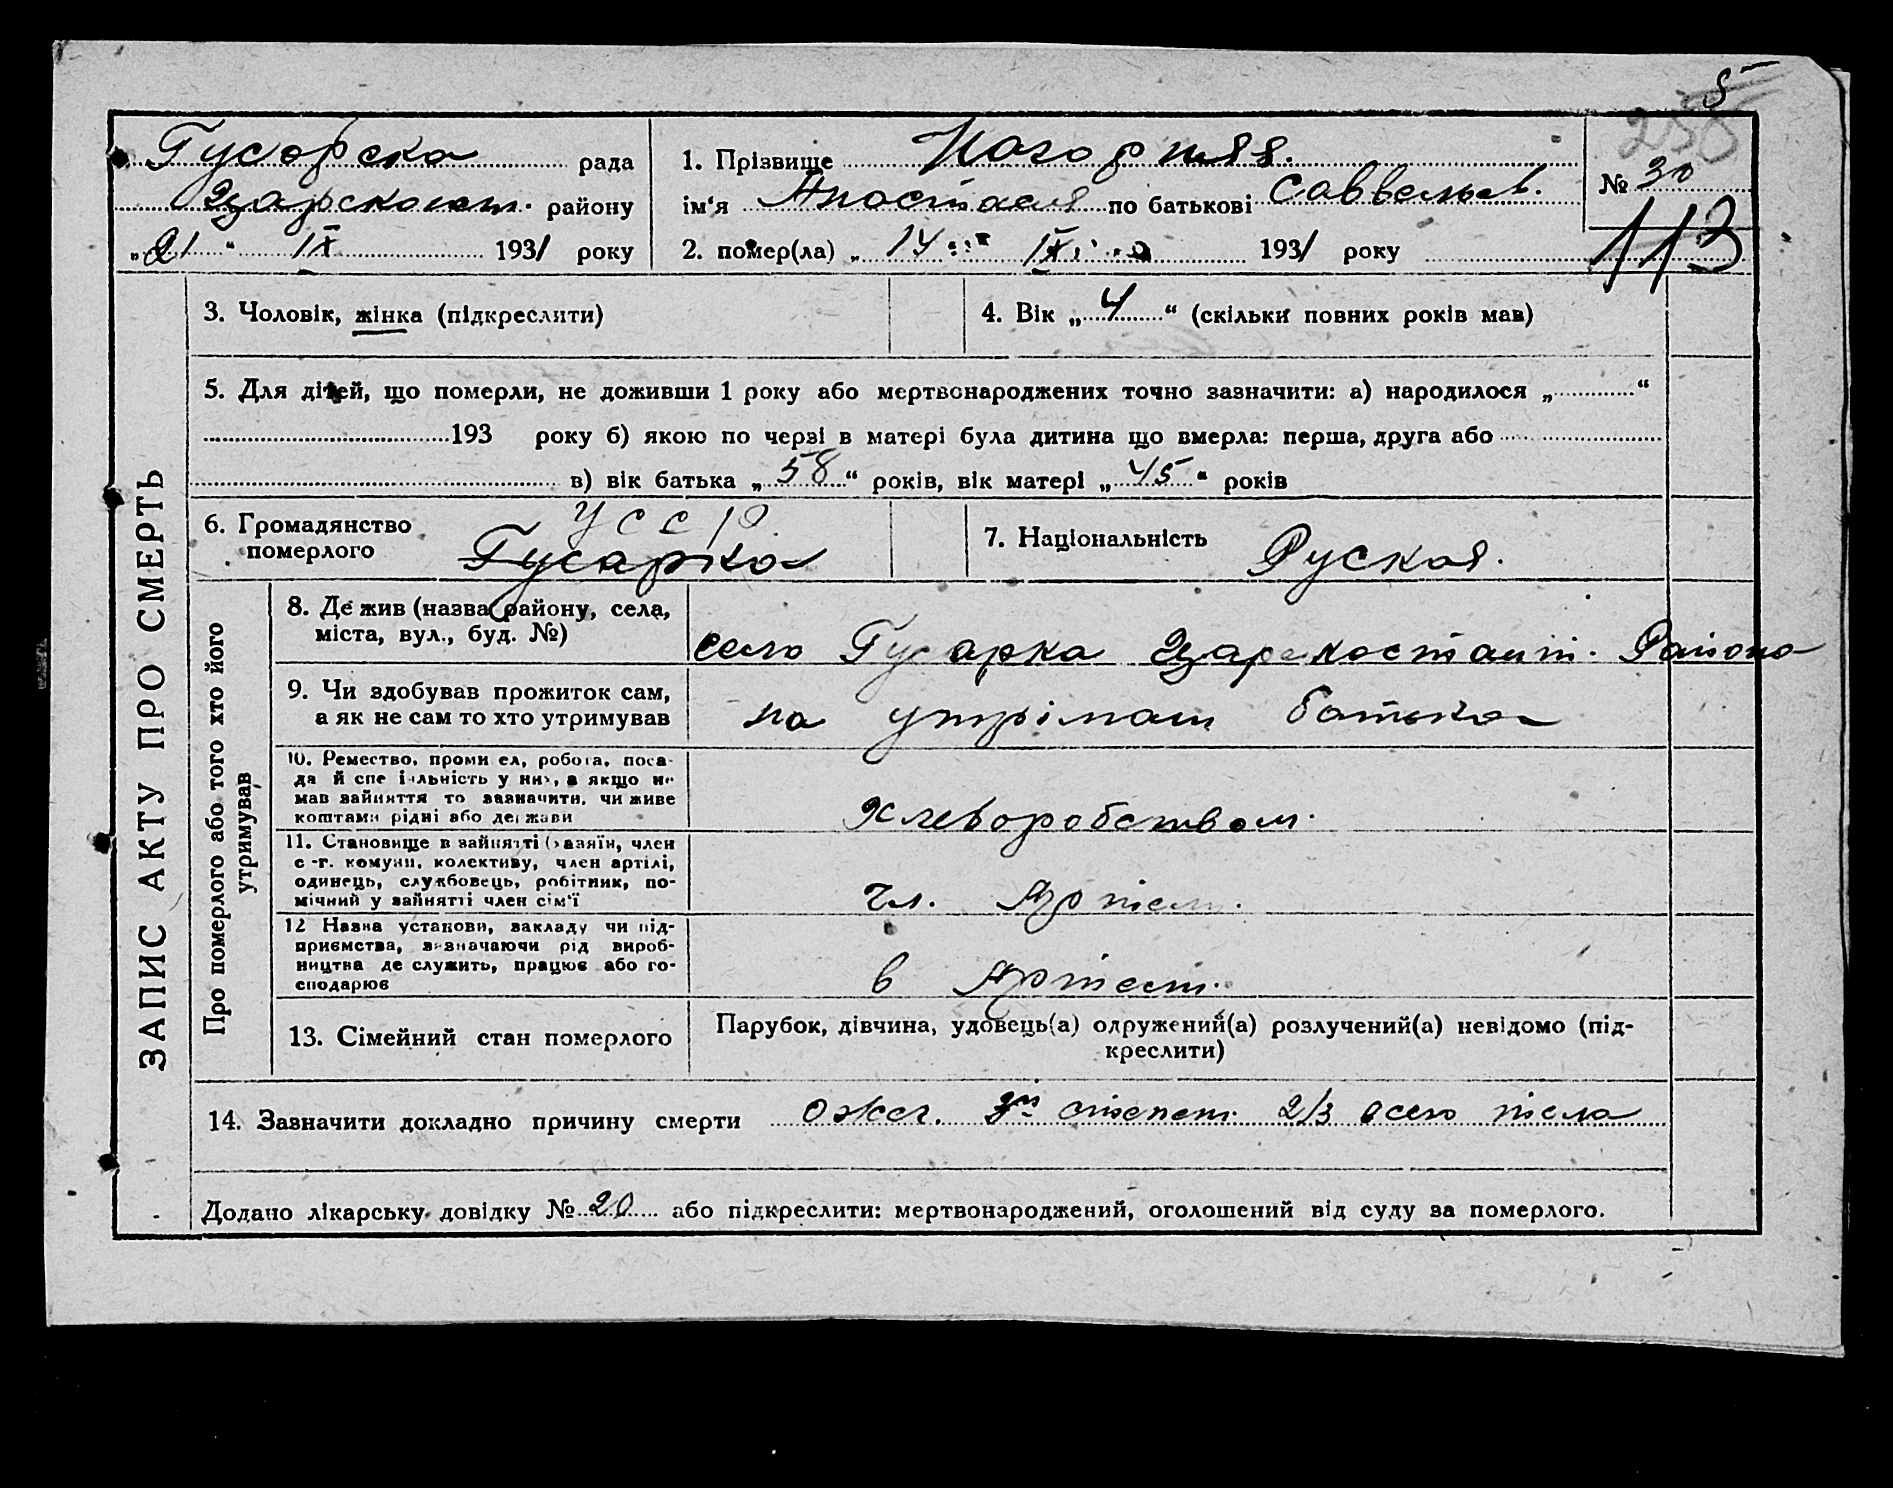 5
255
Гусарска рада
Царскокст. району
„21“ IX 1931 року
1. Прізвище Нагорняя.
ім'я Анастасія по батькові Саввельев.
2. помер(ла) „14“ IX 1931 року
№ 30
113
3. Чоловік, жінка (підкреслити)
4. Вік „4“ (скільки повних років мав)
5. Для дітей, що померли, не доживши 1 року або мертвонароджених точно зазначити: а) народилося „ “
193 року б) якою по черзі в матері була дитина що вмерла: перша, друга або
в) вік батька „58“ років, вік матері „45“ років
6. Громадянство померлого
УССР
Гусарка
7. Національність Руская.
ЗАПИС АКТУ ПРО СМЕРТЬ
Про померлого або того хто його утримував
8. Де жив (назва району, села,
міста, вул., буд. №)
село Гусарка Царекостант. Района
9. Чи здобував прожиток сам,
а як не сам то хто утримував
на утрімаш батька
10. Ремество, проми ел, робота, поса-
да й спе і льність у них, а якщо не
мав зайняття то зазначити, чи живе
коштами рідні або держави
Хлеборобством.
11. Становище в зайнятті (хазяїн, член
с.-г. комуни, колективу, член артілі,
одинець, службовець, робітник, по-
мічний у зайнятті член сім'ї
чл. Артіли.
12 Назва установи, закладу чи під-
приємства, визначаючи рід вироб-
ництва де служить, працює або го-
сподарює
в Артели.
13. Сімейний стан померлого
Парубок, дівчина, удовець(а) одружений(а) розлучений(а) невідомо (під-
креслити)
14. Зазначити докладно причину смерти ожег. степени 2/3 всего тела
Додано лікарську довідку № 20 або підкреслити: мертвонароджений, оголошений від суду за померлого.